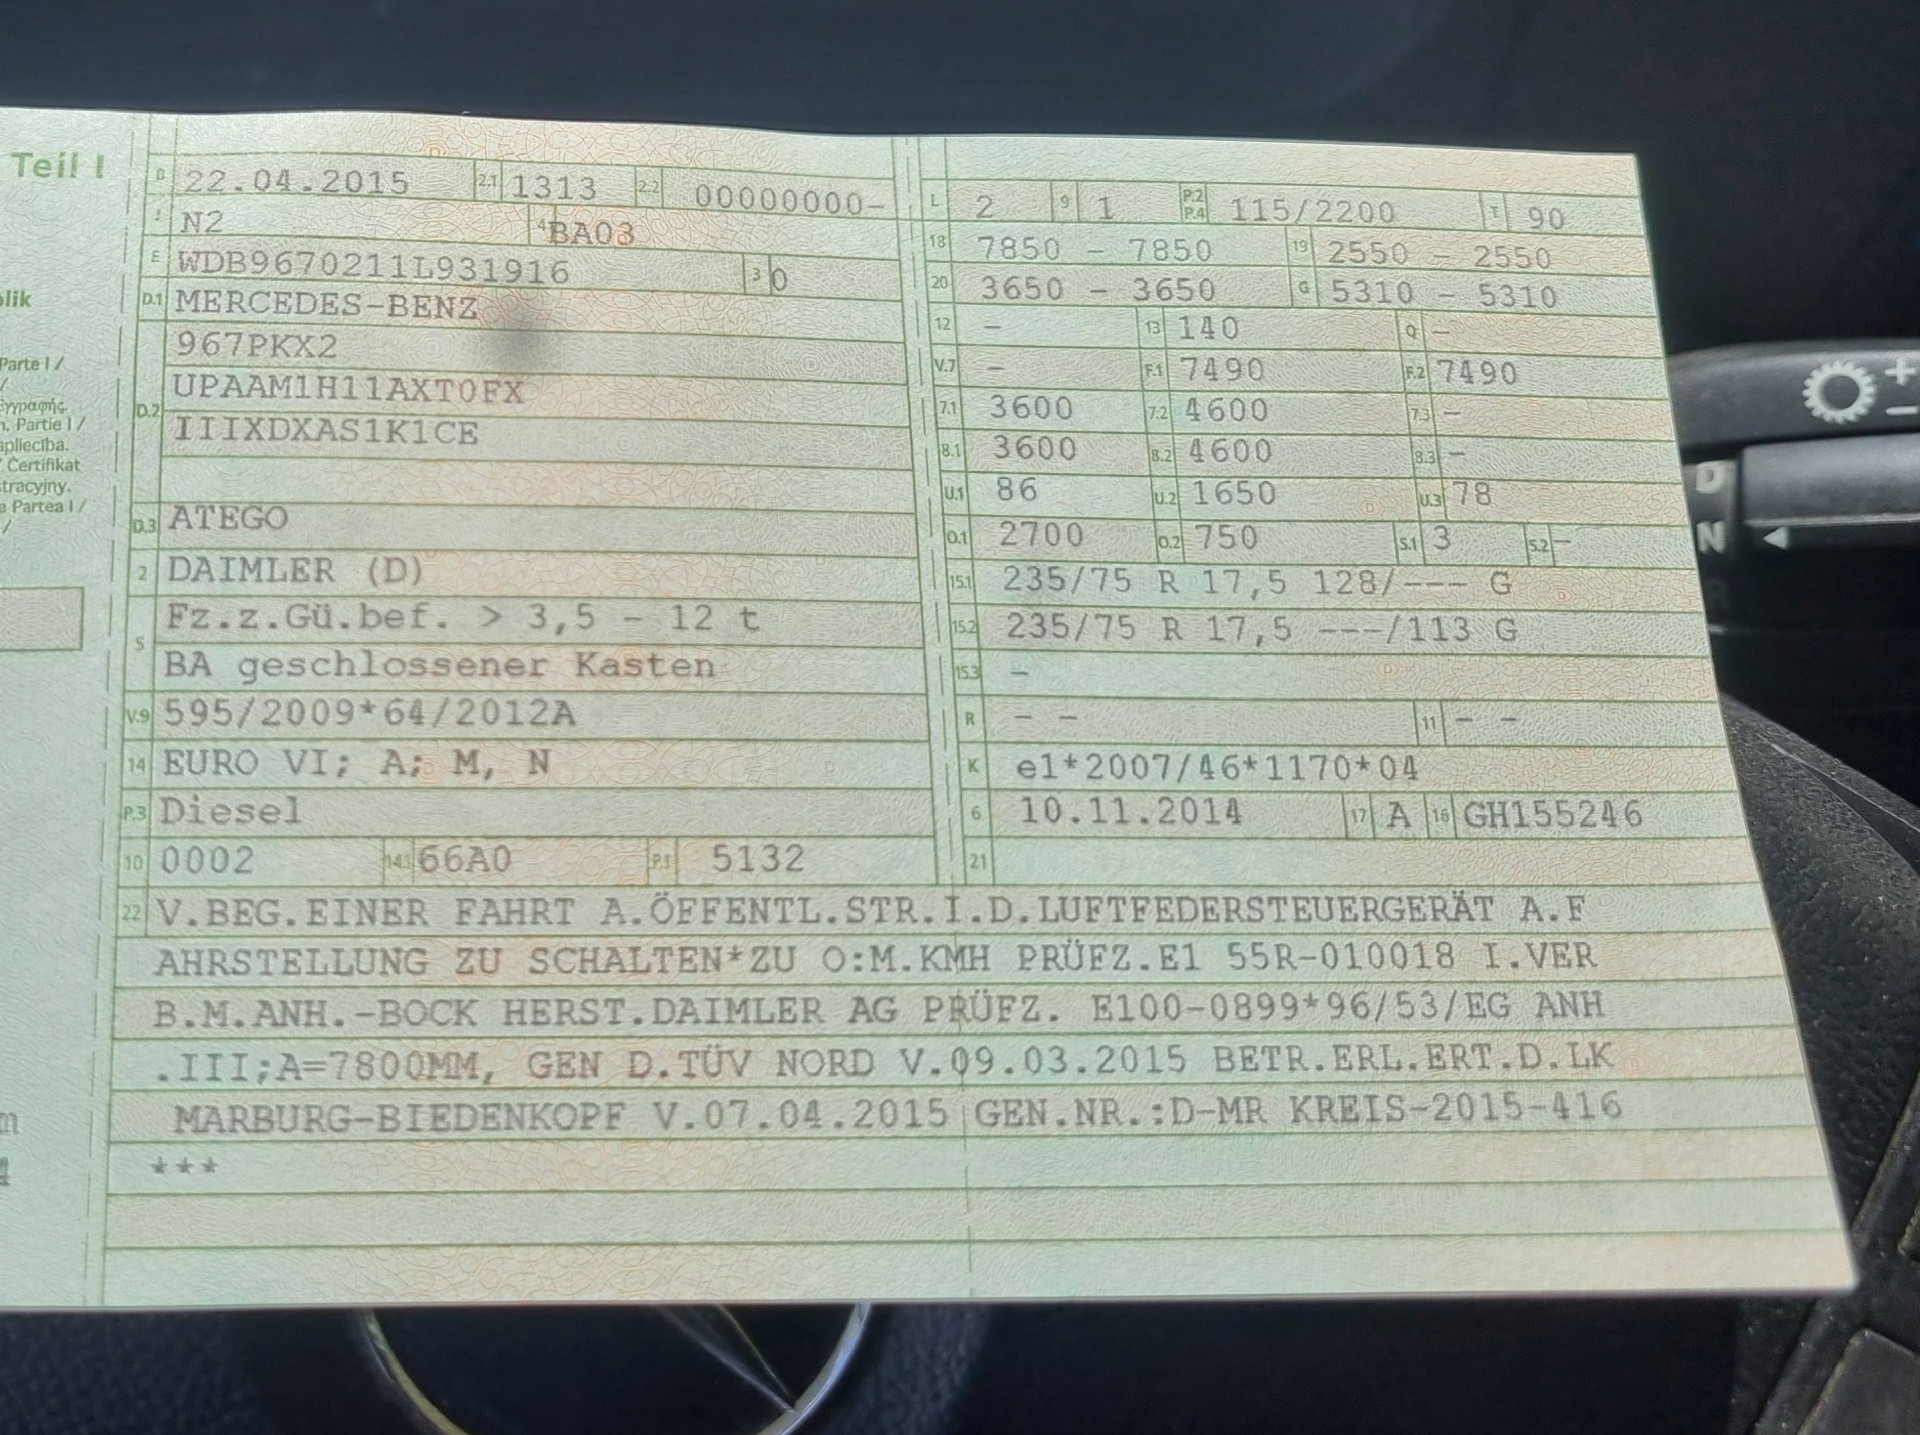 Teil I
blik
Parte I /
/
Εγγραφής.
n. Partie I /
apliecība.
/ Certifikat
tracyjny.
a Partea I /
/
B 22.04.2015 2.1 1313 2.2 00000000-
J N2 4 BA03
E WDB9670211L931916 3 0
D.1 MERCEDES-BENZ
967PKX2
D.2 UPAAM1H11AXT0FX
IIIXDXAS1K1CE
D.3 ATEGO
2 DAIMLER (D)
5 Fz.z.Gü.bef. > 3,5 - 12 t
BA geschlossener Kasten
V.9 595/2009*64/2012A
14 EURO VI; A; M, N
P.3 Diesel
10 0002 14.1 66A0 P.1 5132
L 2 9 1 P.2 P.4 115/2200 T 90
18 7850 - 7850 19 2550 - 2550
20 3650 - 3650 G 5310 - 5310
12 - 13 140 Q -
V.7 - F.1 7490 F.2 7490
7.1 3600 7.2 4600 7.3 -
8.1 3600 8.2 4600 8.3 -
U.1 86 U.2 1650 U.3 78
O.1 2700 O.2 750 S.1 3 S.2 -
15.1 235/75 R 17,5 128/--- G
15.2 235/75 R 17,5 ---/113 G
15.3 -
R - - 11 - -
K e1*2007/46*1170*04
6 10.11.2014 17 A 16 GH155246
21
22 V.BEG.EINER FAHRT A.ÖFFENTL.STR.I.D.LUFTFEDERSTEUERGERÄT A.F
AHRSTELLUNG ZU SCHALTEN*ZU O:M.KMH PRÜFZ.E1 55R-010018 I.VER
B.M.ANH.-BOCK HERST.DAIMLER AG PRÜFZ. E100-0899*96/53/EG ANH
.III;A=7800MM, GEN D.TÜV NORD V.09.03.2015 BETR.ERL.ERT.D.LK
MARBURG-BIEDENKOPF V.07.04.2015 GEN.NR.:D-MR KREIS-2015-416
***
+
-
D
N
R